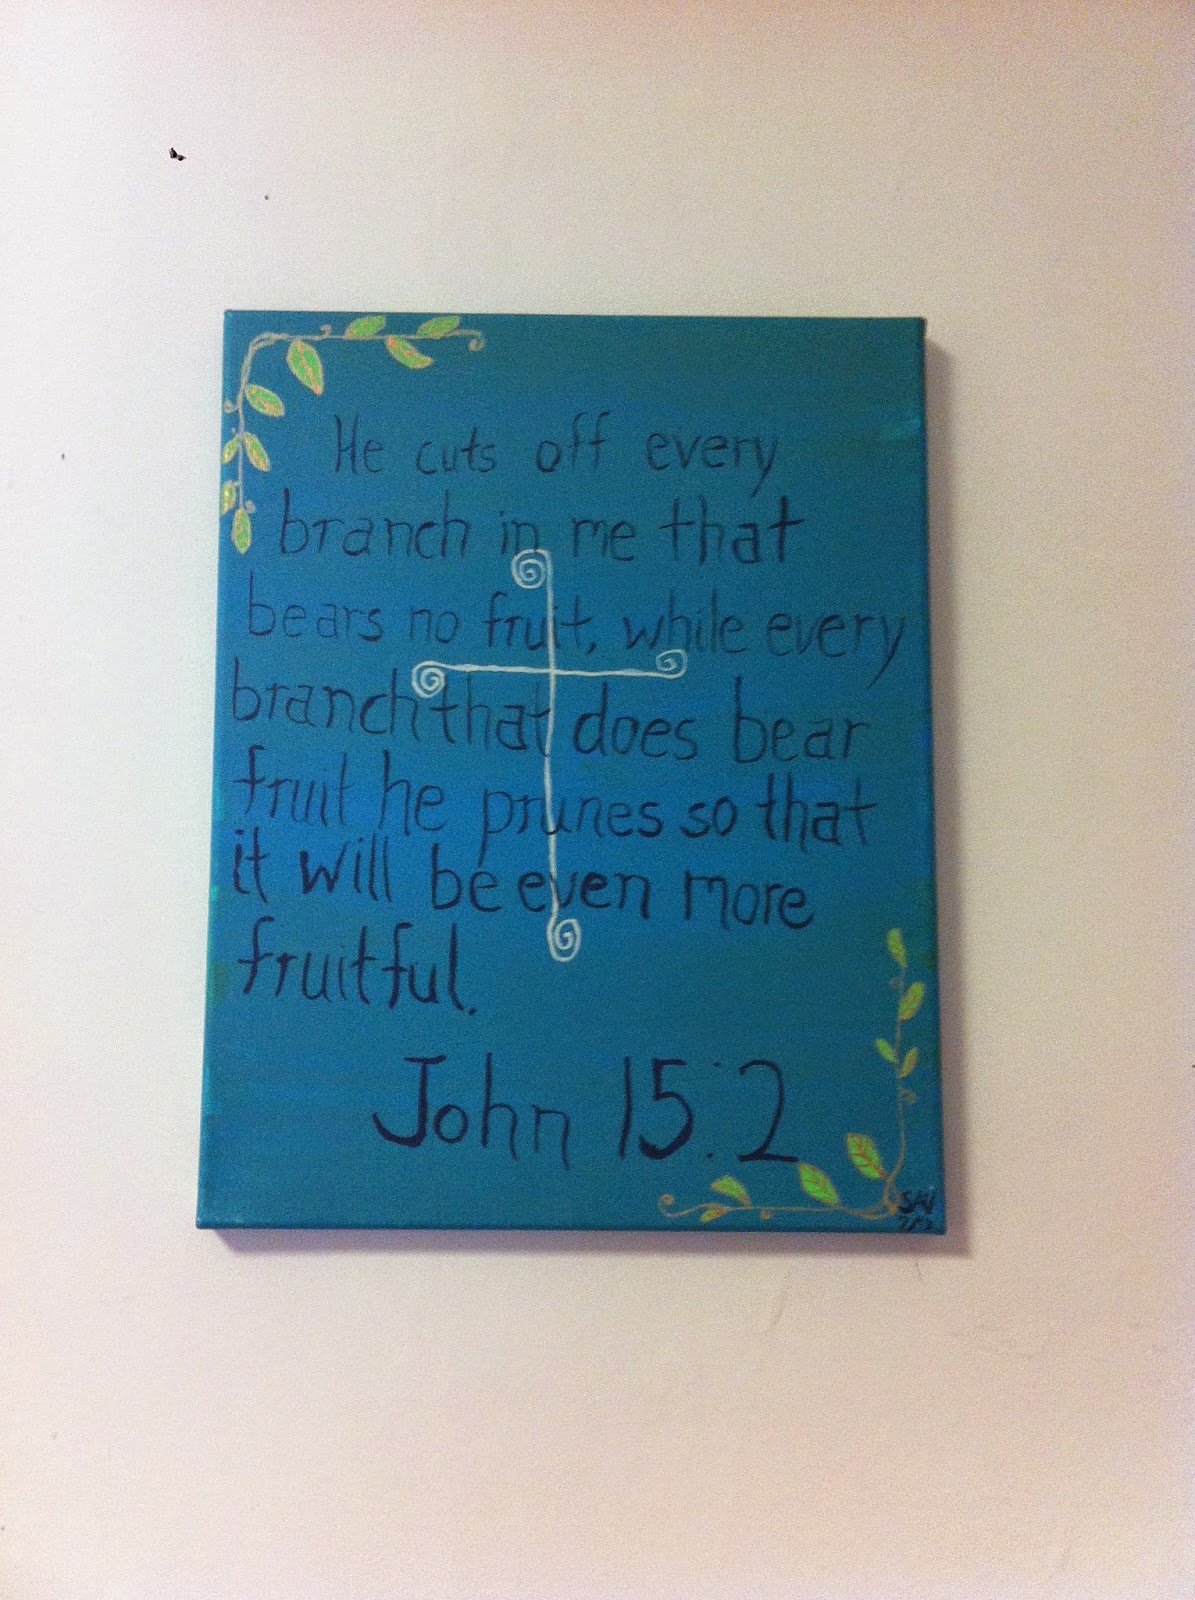 He cuts off every
branch in me that
bears no fruit, while every
branch that does bear
fruit he prunes so that
it will be even more
fruitful.
John 15:2